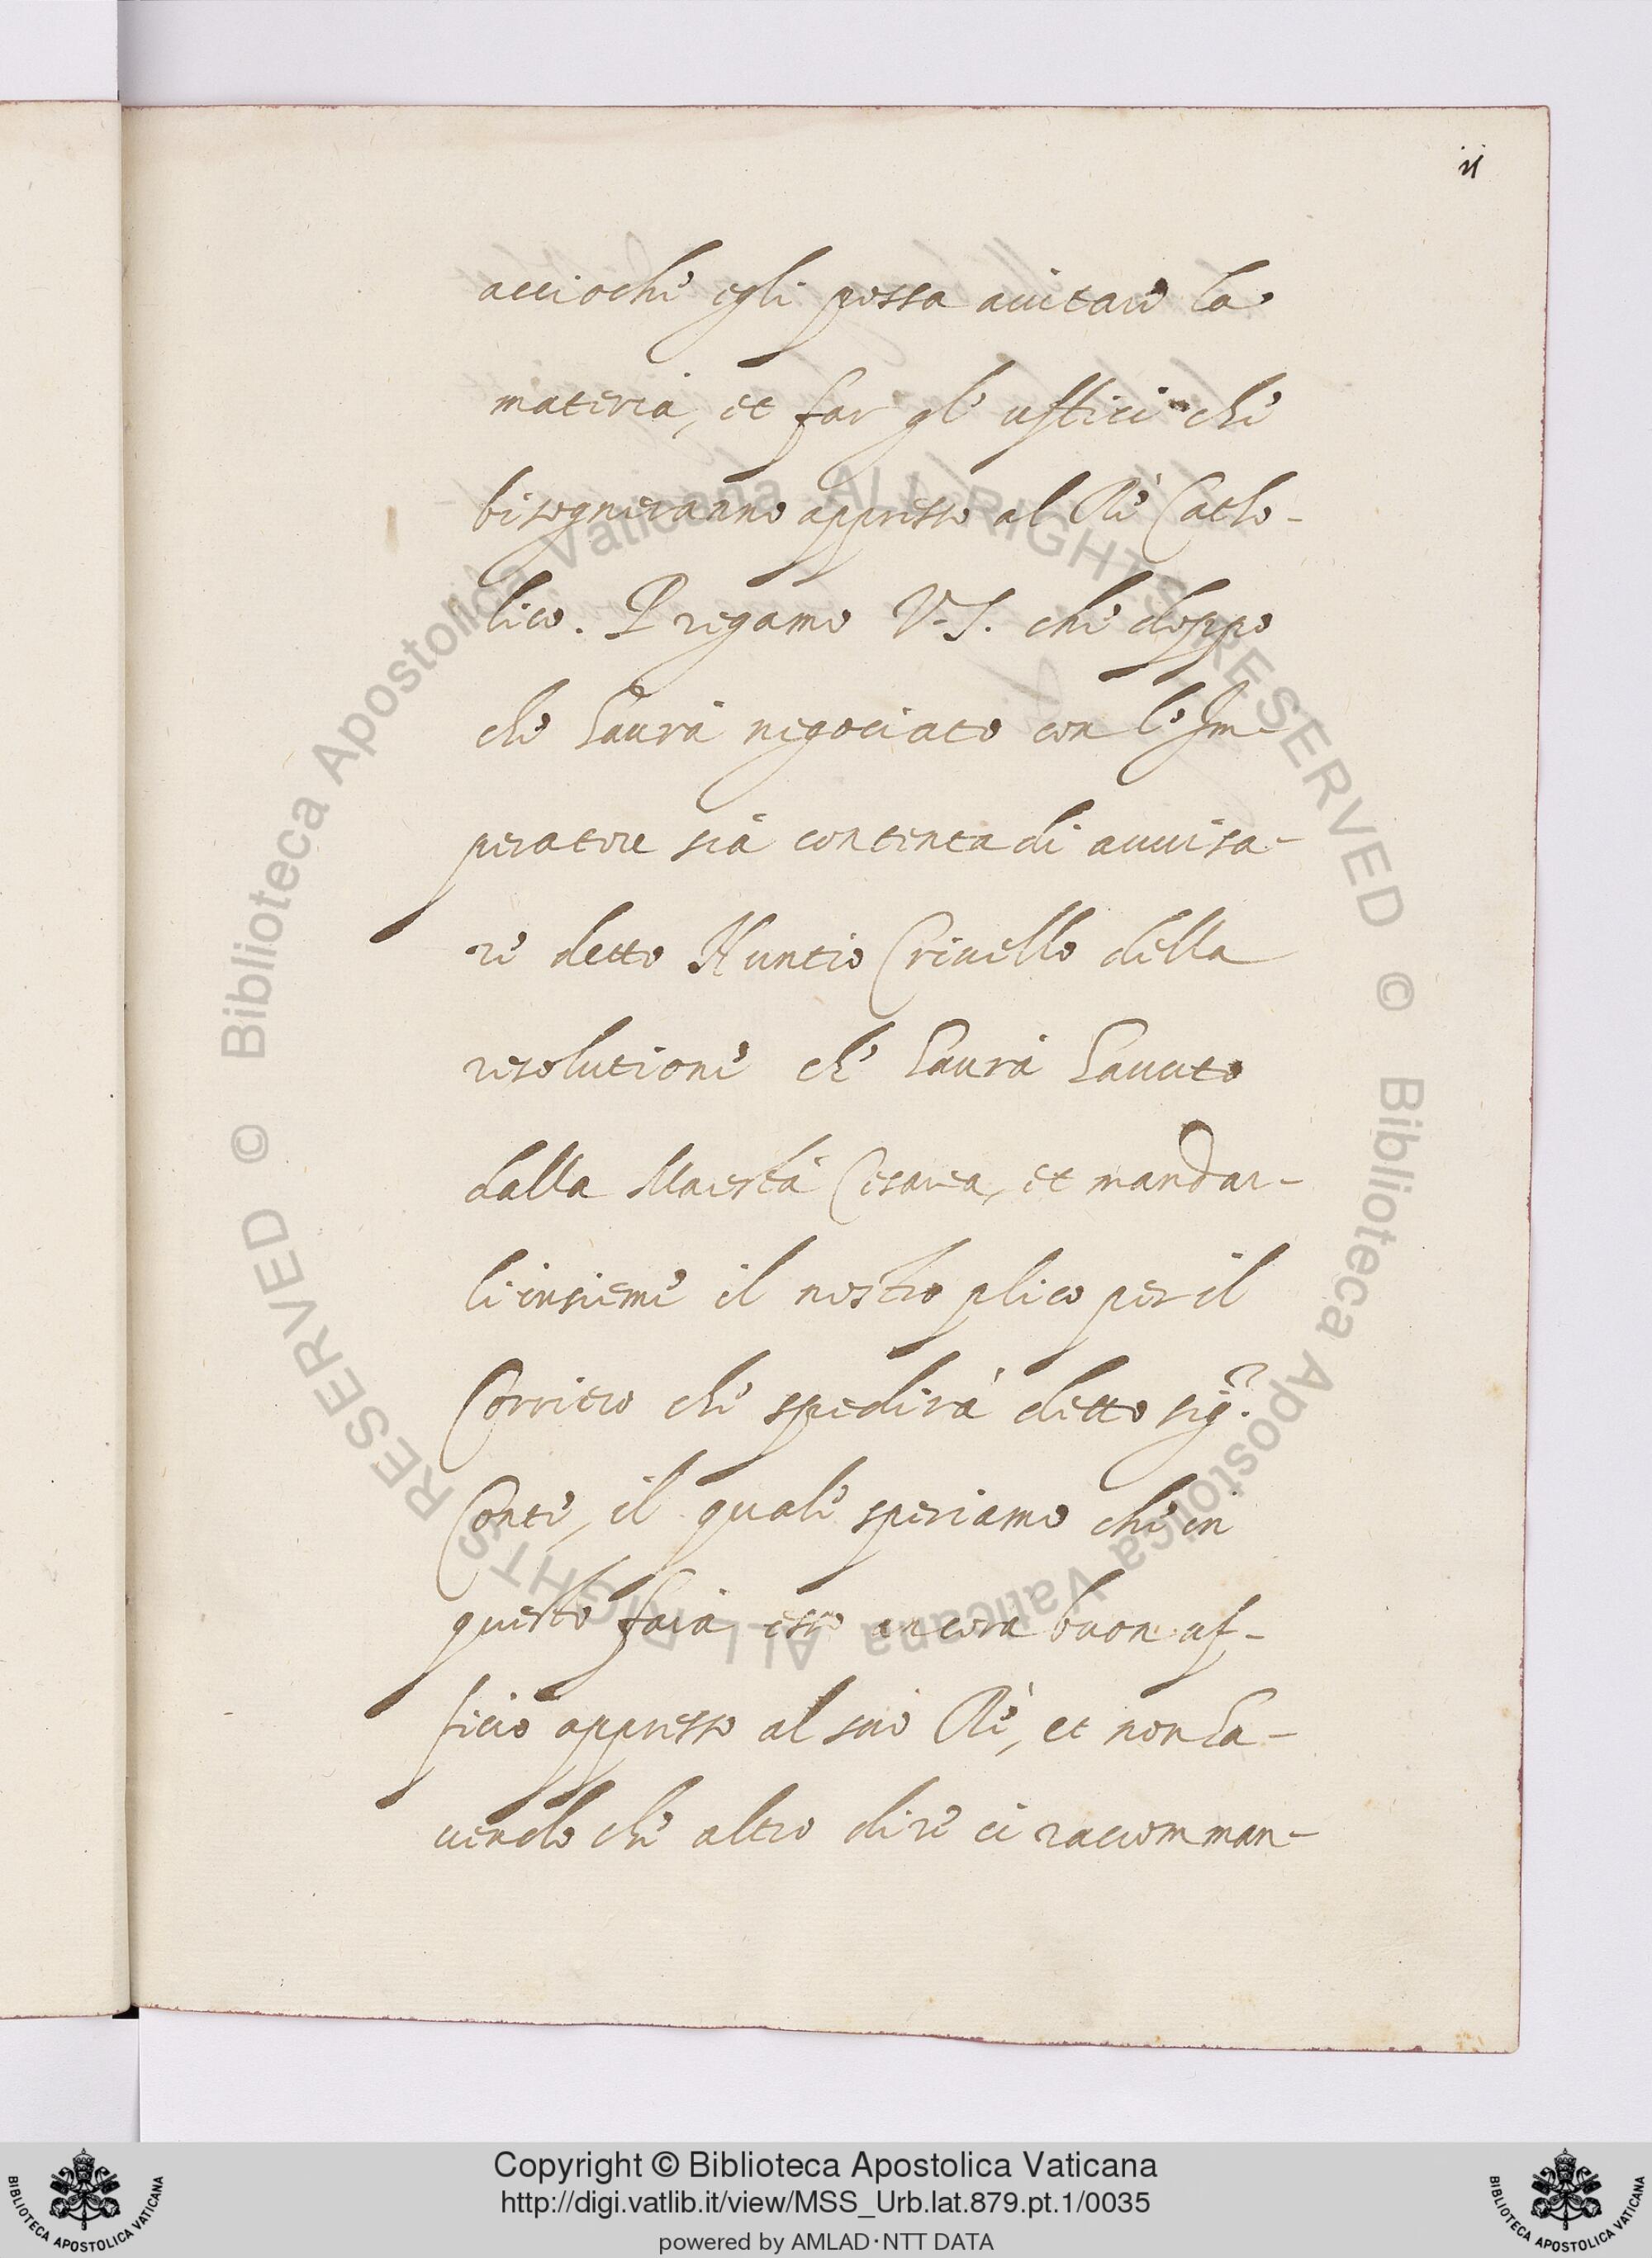 11
acciochè egli possa aiutare la
materia, et far gl' uffici che
bisogneranno appresso al Rè Catho-
lico. Pregamo V.S. che doppo
che haurà negociato con l'Im-
peratore sia contenta di auuisa-
re detto Nuntio Criuello della
resolutione ch' haurà hauuto
dalla Maestà Cesarea, et mandar-
li insieme il nostro plico per il
Corriero che spedirà detto sig.r
Conte, il quale speriamo che in
questo farà esso ancora buon uf-
ficio appresso al suo Rè, et non ha-
uendo che altro dire ci raccomman-
© Biblioteca Apostolica Vaticana ALL RIGHTS RESERVED
© Biblioteca Apostolica Vaticana ALL RIGHTS RESERVED
Copyright © Biblioteca Apostolica Vaticana
http://digi.vatlib.it/view/MSS_Urb.lat.879.pt.1/0035
powered by AMLAD·NTT DATA
BIBLIOTECA APOSTOLICA VATICANA
BIBLIOTECA APOSTOLICA VATICANA